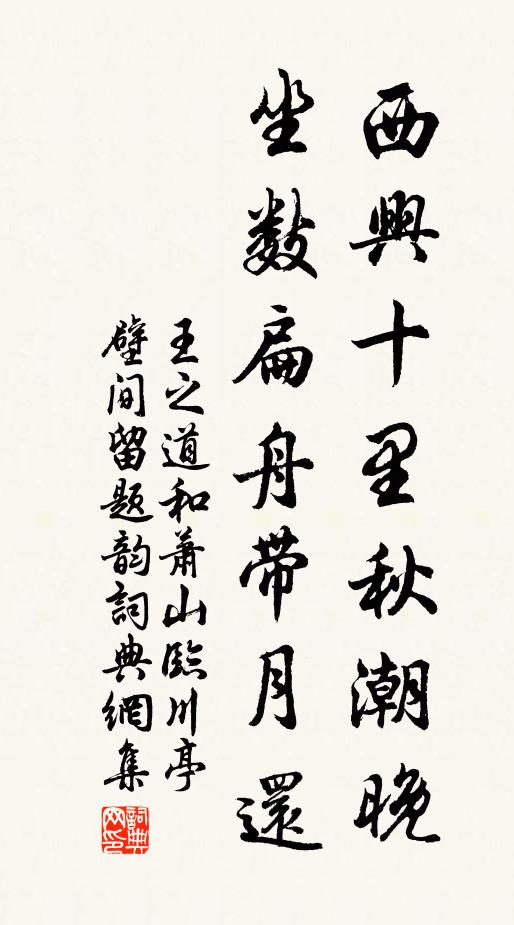 西興十里秋潮晚
坐數扁舟帶月還
王之道和蕭山臨川亭
壁间留题韵詞典網集
詞典
网印